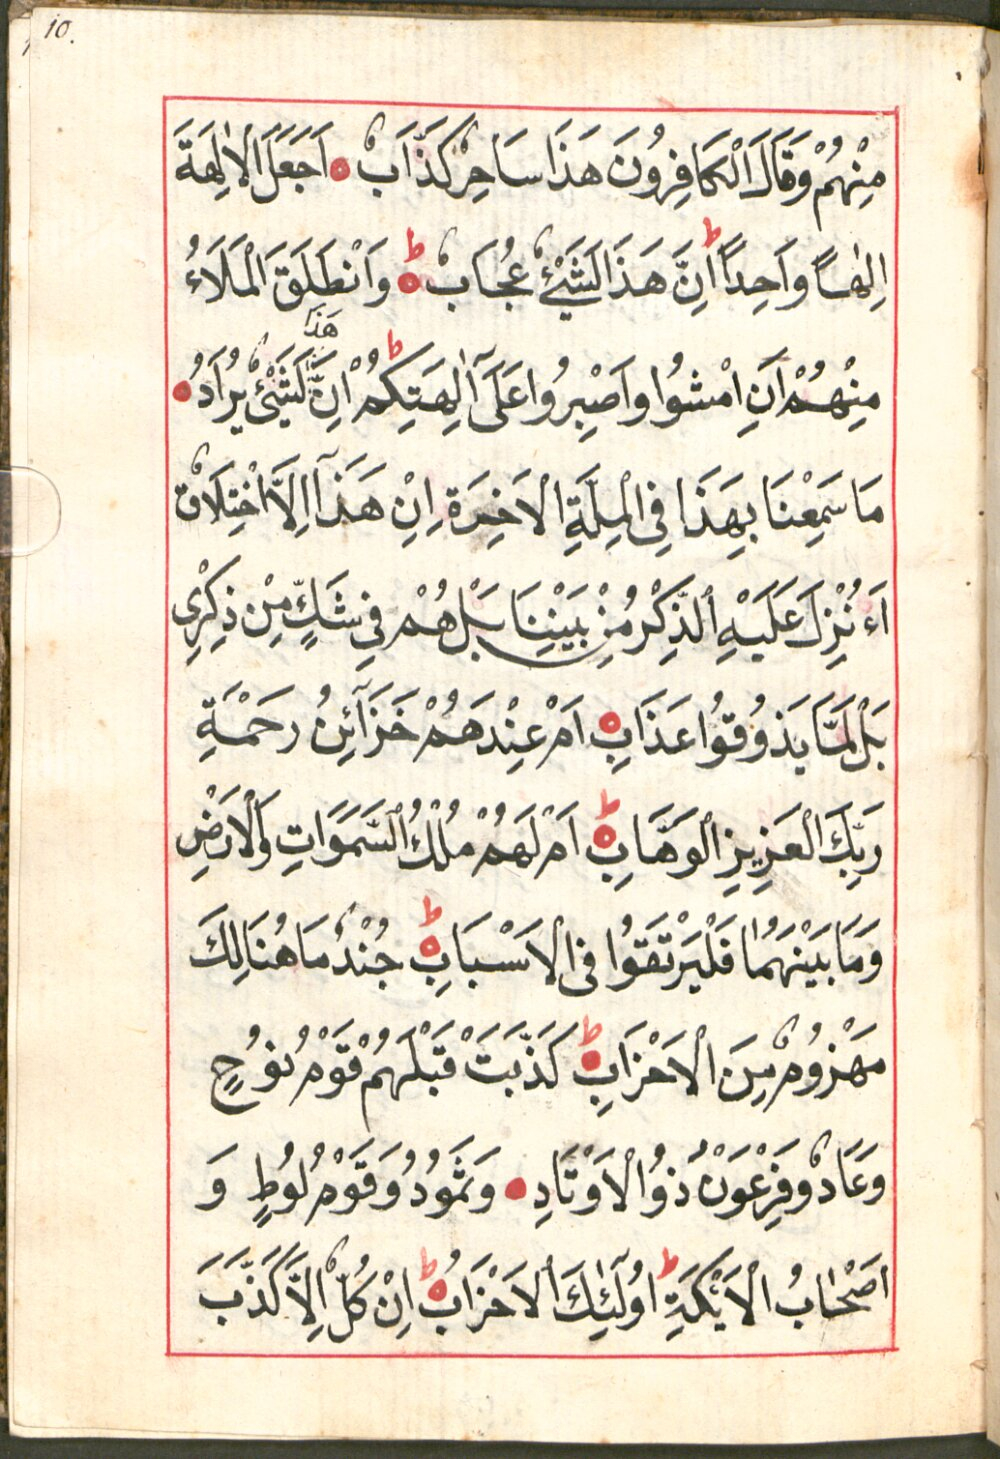 10.
مِنْهُمْ وَقَالَ الْكَافِرُونَ هَذَا سَاحِرٌ كَذَّابٌ اَجَعَلَ الْاٰلِهَةَ
اِلٰهاً وَاَحِداً ط اِنَّ هَذَا لَشَيْئٌ عُجَابٌ ط وَانْطَلَقَ الْمَلَاءُ
هَذَا
مِنْهُمْ اَنِ امْشُوا وَاصْبِرُوا عَلَىٓ اٰلِهَتِكُمْ ط اِنَّ لَشَيْئٌ يُرَادُ
مَا سَمِعْنَا بِهَذَا فِى الْمِلَّةِ الْاَخِرَةِ اِنْ هَذَآ اِلَّا اخْتِلَاقٌ
اَءُنْزِلَ عَلَيْهِ الذِّكْرُ مِنْ بَيْنِنَا بَلْ هُمْ فِى شَكٍّ مِنْ ذِكْرِى
بَلْ لَمَّا يَذُوقُوا عَذَابِ اَمْ عِنْدَهُمْ خَزَآئِنُ رَحْمَةِ
رَبِّكَ الْعَزِيزِ الْوَهَّابِ ط اَمْ لَهُمْ مُلْكُ السَّمَوَاتِ وَالْاَرْضِ
وَمَا بَيْنَهُمَا فَلْيَرْتَقُوا فِى الْاَسْبَابِ ط جُنْدٌ مَا هُنَالِكَ
مَهْزُومٌ مِنَ الْاَحْزَابِ ط كَذَّبَتْ قَبْلَهُمْ قَوْمُ نُوحٍ
وَعَادٌ وَفِرْعَوْنُ ذُو الْاَوْتَادِ وَثَمُودُ وَقَوْمُ لُوطٍ وَ
اَصْحَابُ الْاَيْكَةِ ط اُولَٓئِكَ الْاَحْزَابُ ط اِنْ كُلٌّ اِلَّا كَذَّبَ